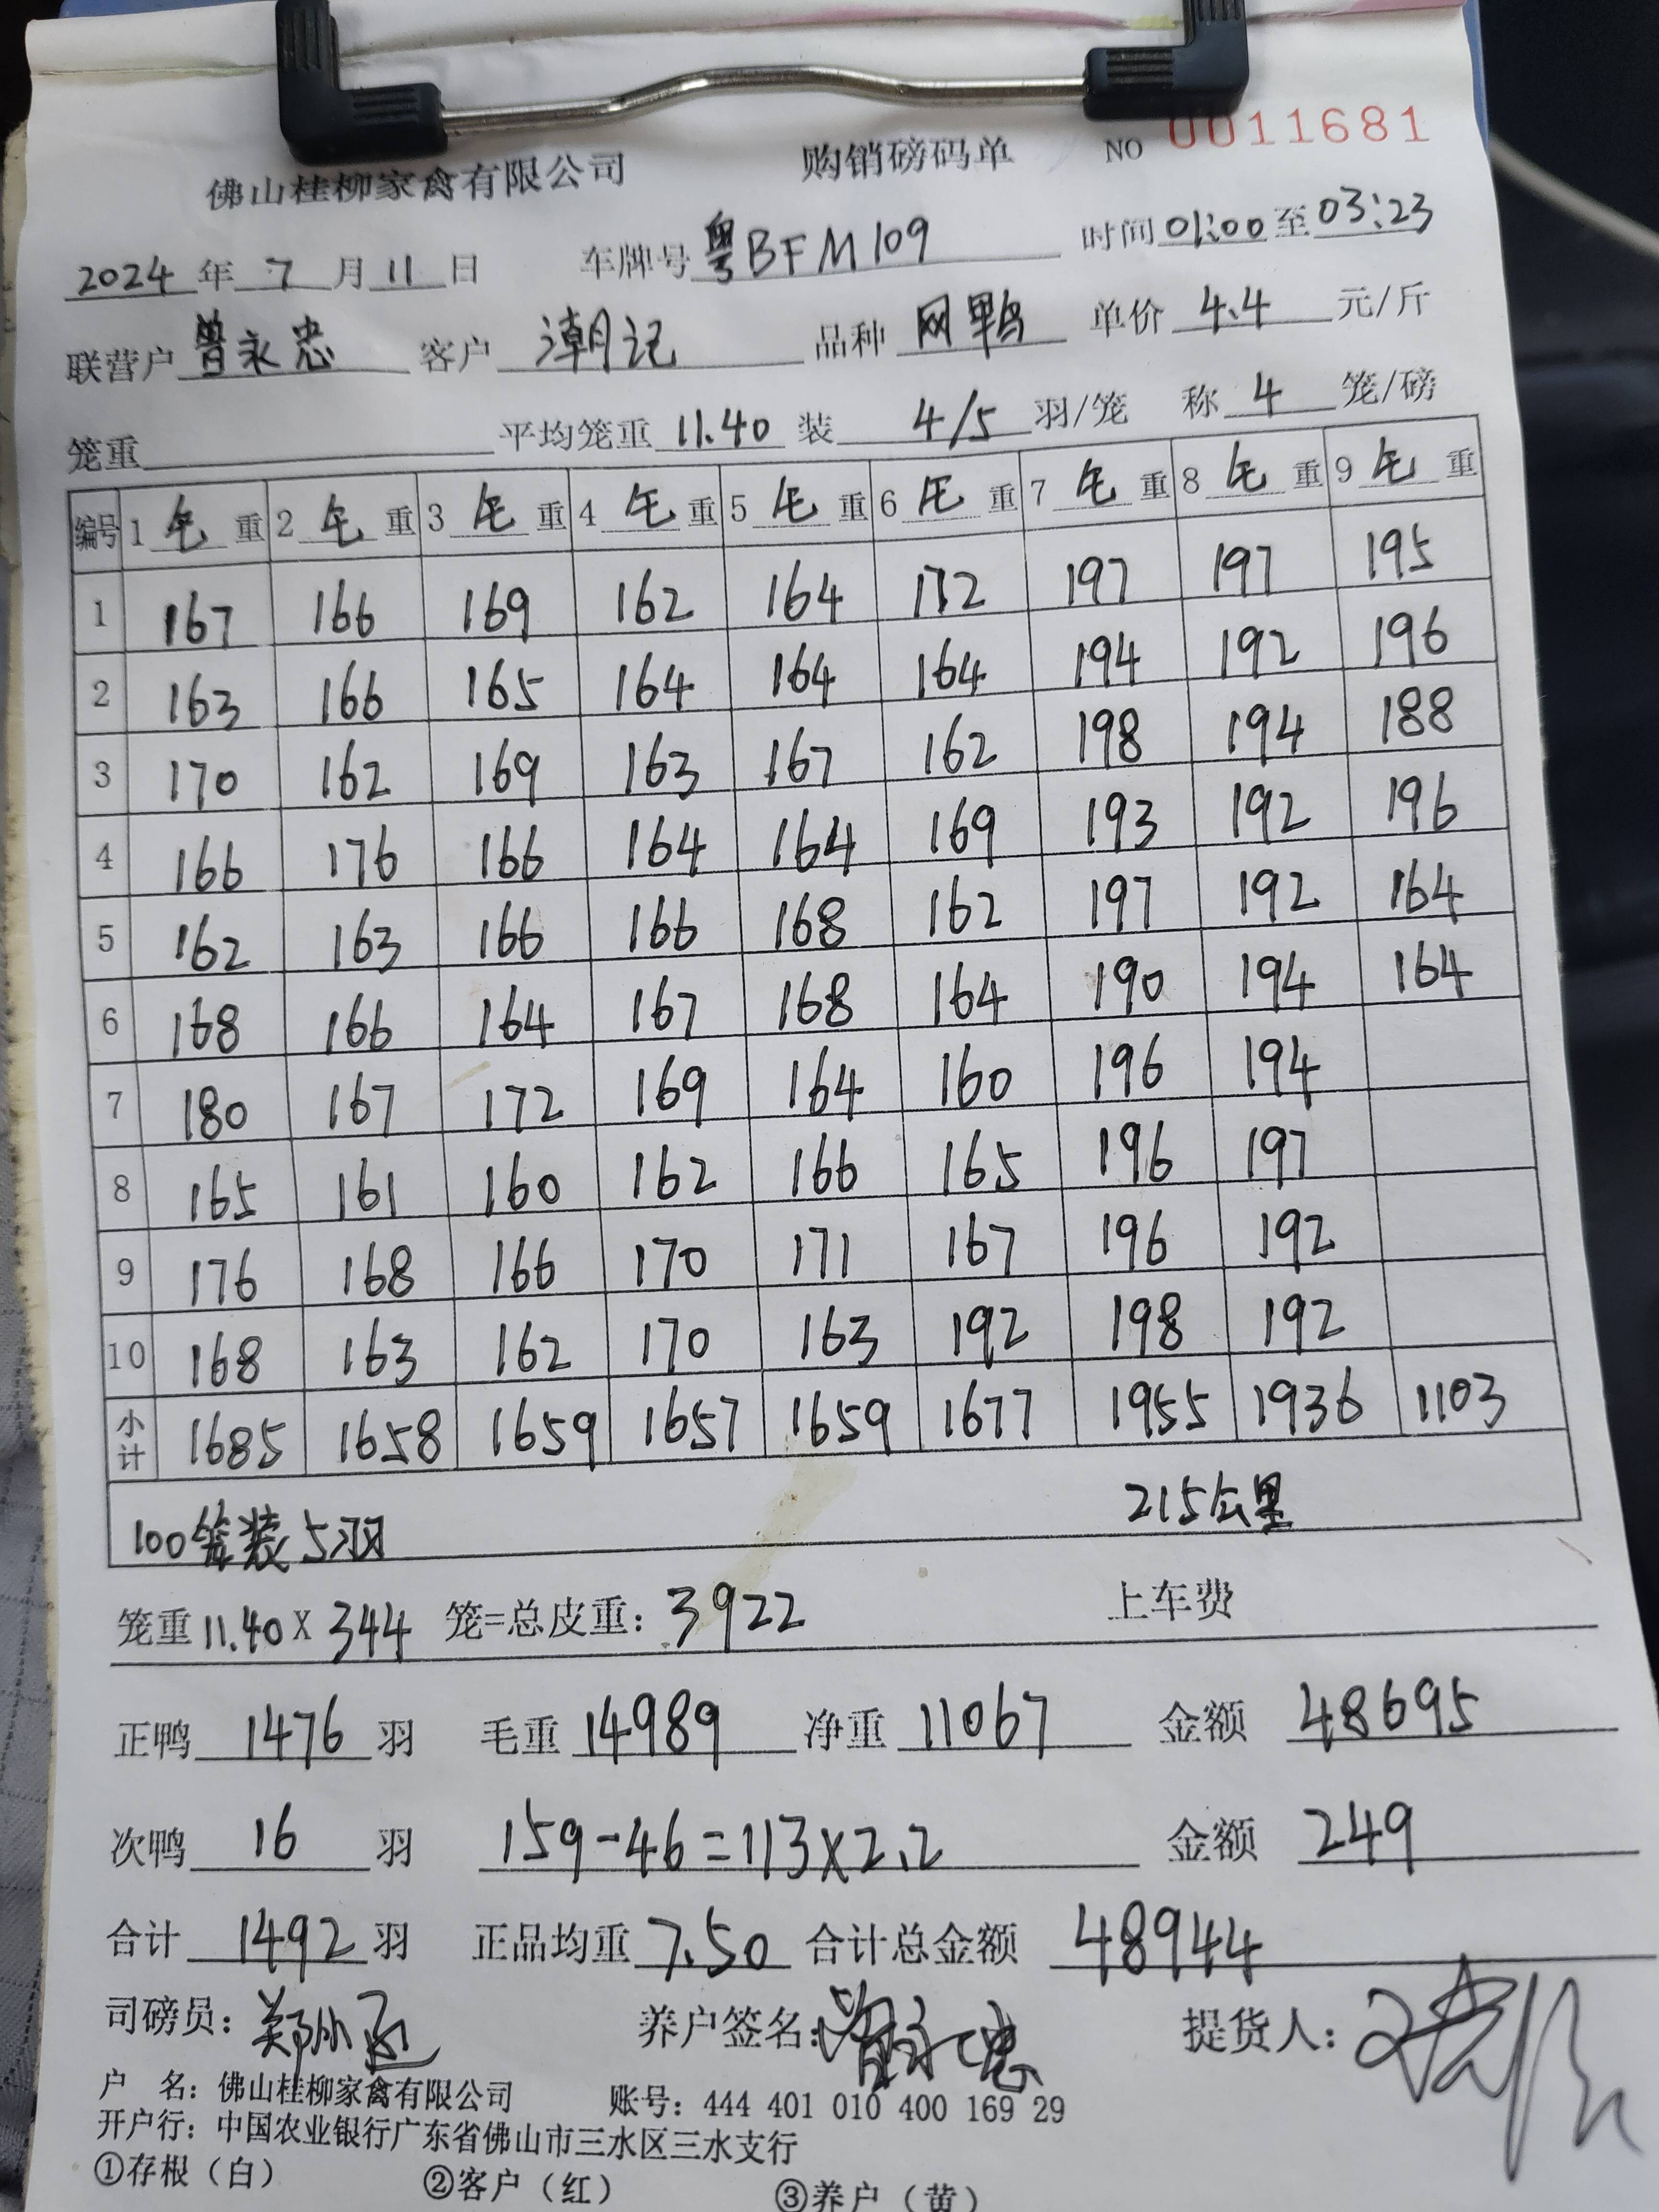 佛山桂柳家禽有限公司 购销磅码单 NO 0011681
2024年7月11日 车牌号粤BFM109 时间01:00至03:23
联营户曾永忠 客户潮记 品种网鸭 单价4.4元/斤
笼重 平均笼重11.40装4/5羽/笼 称4笼/磅
编号 1毛重 2毛重 3毛重 4毛重 5毛重 6毛重 7毛重 8毛重 9毛重
1 167 166 169 162 164 172 197 197 195
2 163 166 165 164 164 164 194 192 196
3 170 162 169 163 167 162 198 194 188
4 166 176 166 164 164 169 193 192 196
5 162 163 166 166 168 162 197 192 164
6 168 166 164 167 168 164 190 194 164
7 180 167 172 169 164 160 196 194
8 165 161 160 162 166 165 196 197
9 176 168 166 170 171 167 196 192
10 168 163 162 170 163 192 198 192
小计 1685 1658 1659 1657 1659 1677 1955 1936 1103
100笼装5羽 215公里
笼重11.40×344笼=总皮重:3922 上车费
正鸭1476羽 毛重14989 净重11067 金额48695
次鸭16羽 159-46=113×2.2 金额249
合计1492羽 正品均重7.50 合计总金额48944
司磅员: 养户签名:曾永忠 提货人:
户 名:佛山桂柳家禽有限公司 账号:444 401 010 400 169 29
开户行:中国农业银行广东省佛山市三水区三水支行
①存根(白) ②客户(红) ③养户(黄)